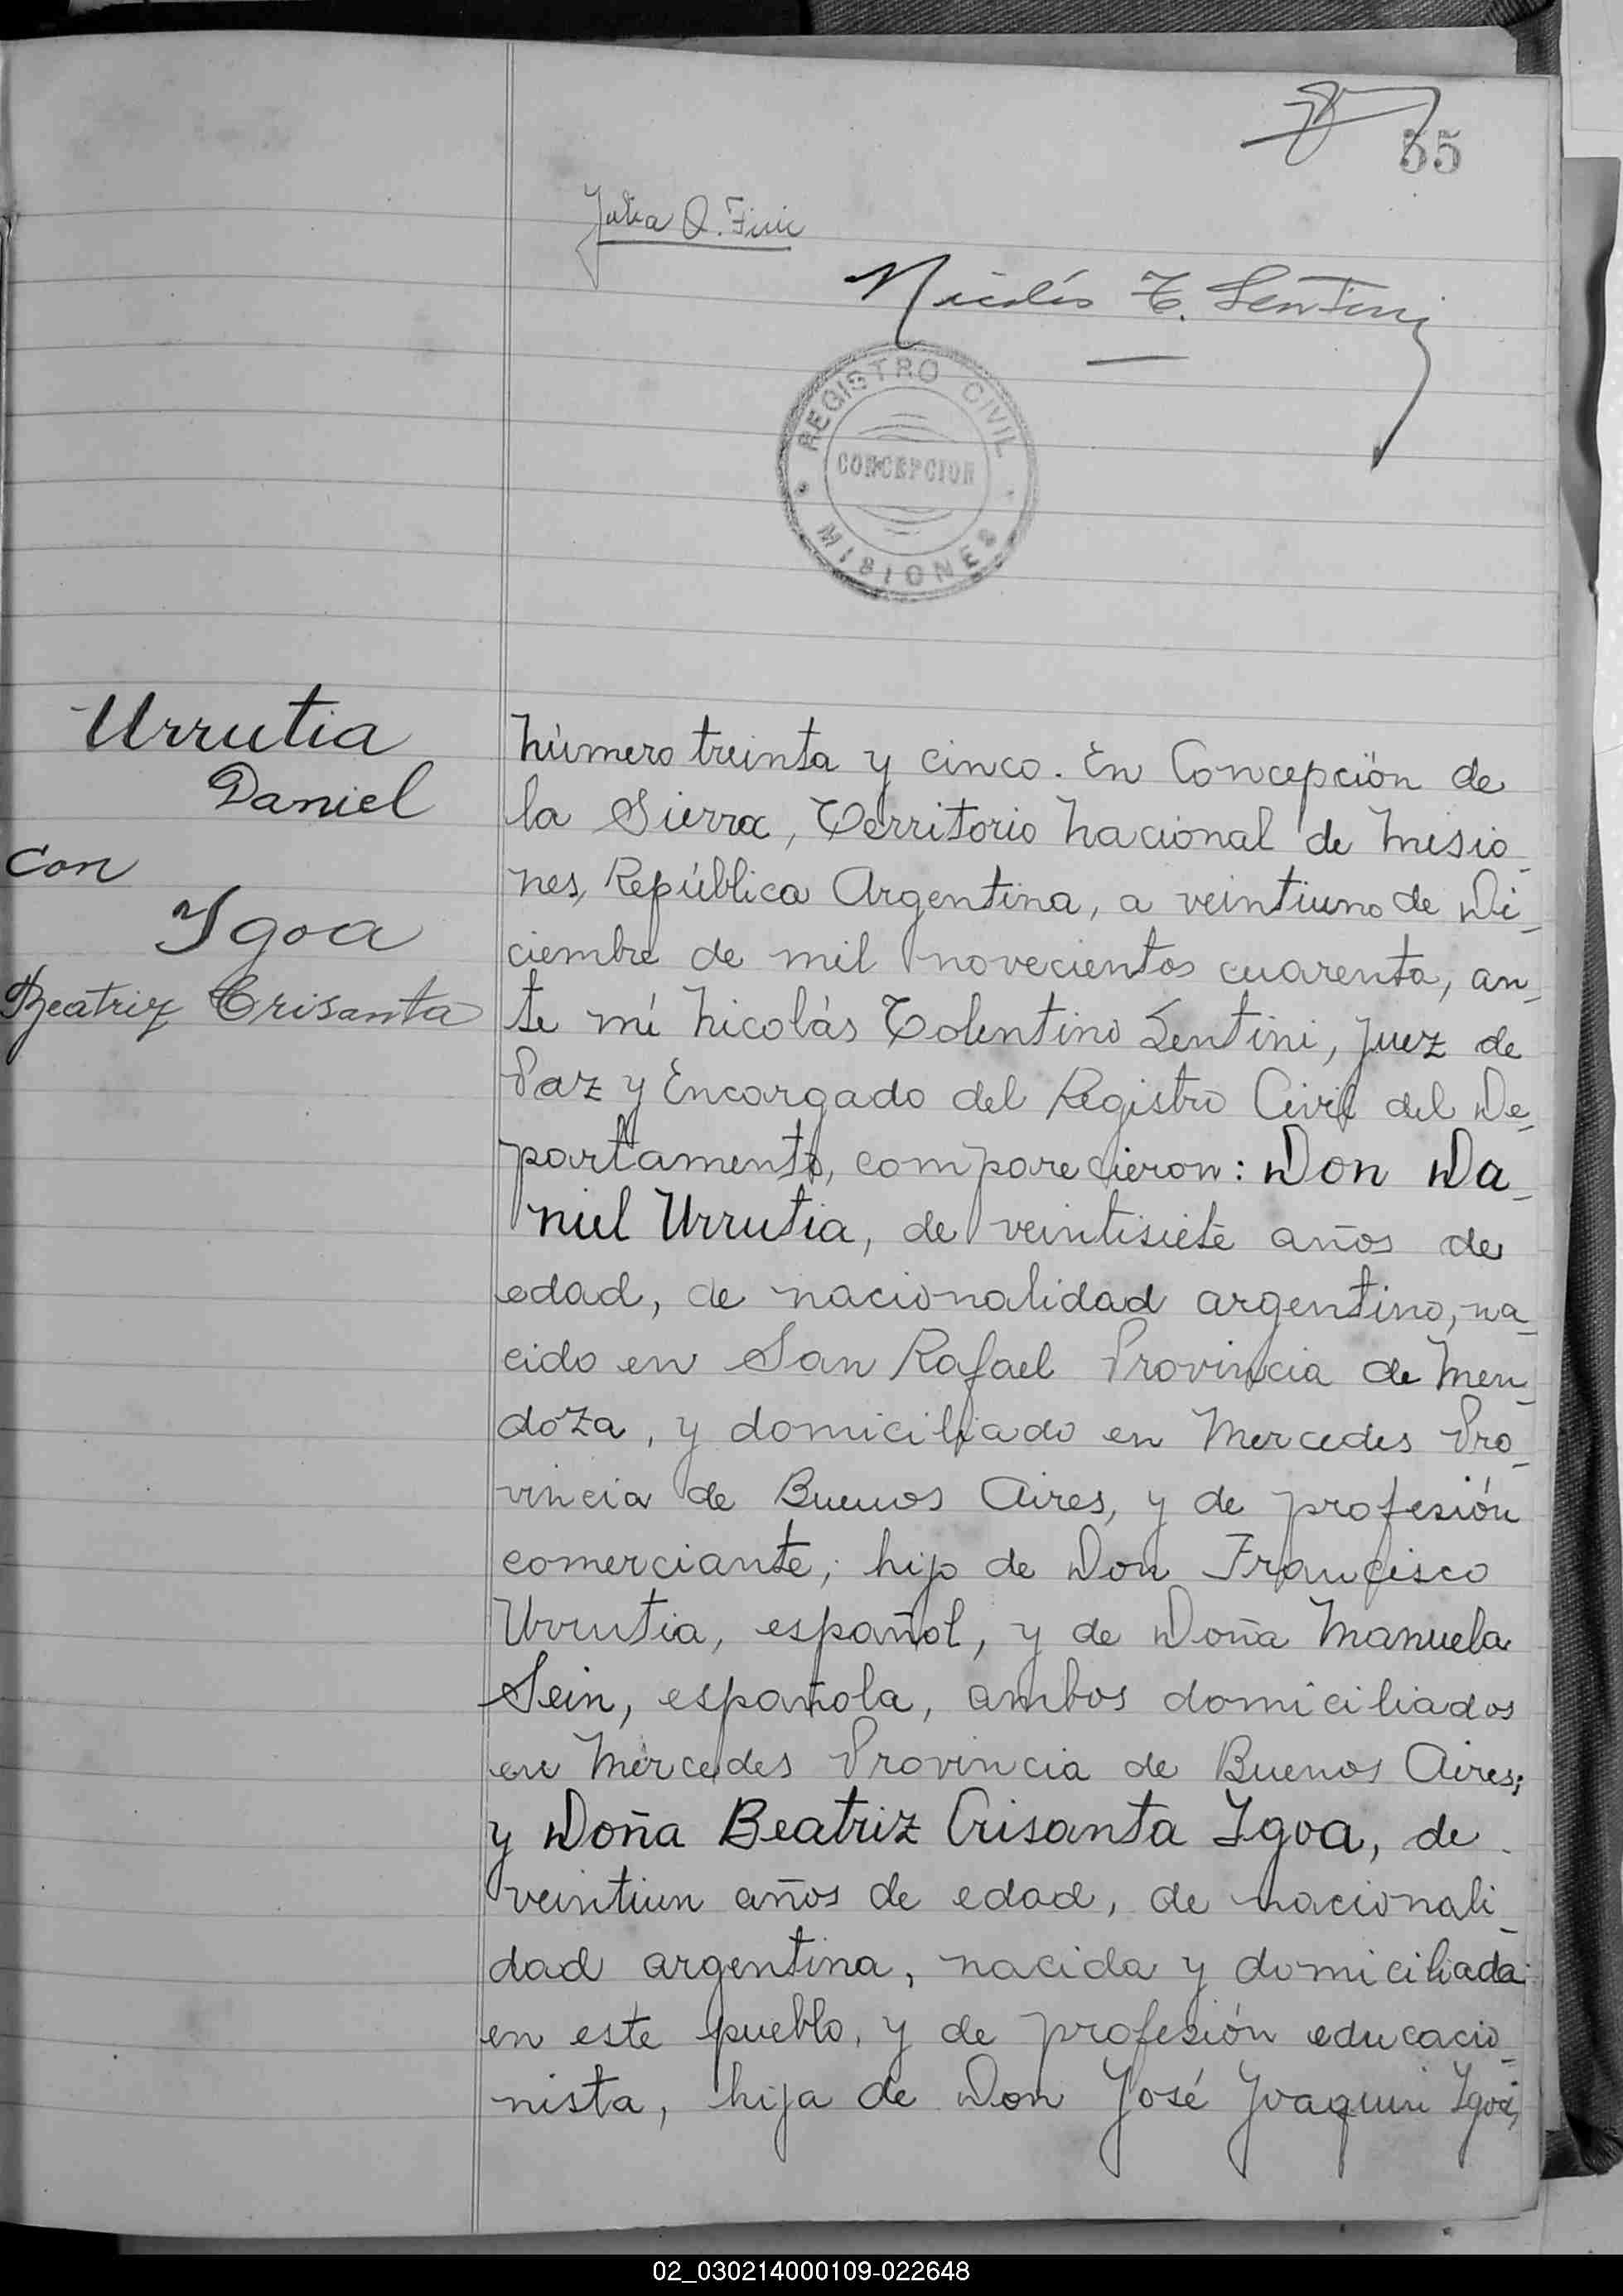 55
Julia Q.
Nicolás T. Sentini
REGISTRO CIVIL
CONCEPCION
MISIONES
Urrutia
Daniel
con
Ygoa
Beatriz Crisanta
Número treinta y cinco. En Concepción de
la Sierra, Territorio Nacional de Misio-
nes, República Argentina, a veintiuno de Di-
ciembre de mil novecientos cuarenta, an-
te mí Nicolás Tolentino Sentini, Juez de
Paz y Encargado del Registro Civil del De-
partamento, comparecieron: Don Da-
niel Urrutia, de veintisiete años de
edad, de nacionalidad argentino, na-
cido en San Rafael Provincia de Men-
doza, y domiciliado en Mercedes Pro-
vincia de Buenos Aires, y de profesión
comerciante; hijo de Don Francisco
Urrutia, español, y de Doña Manuela
Sein, española, ambos domiciliados
en Mercedes Provincia de Buenos Aires;
y Doña Beatriz Crisanta Ygoa, de
veintiun años de edad, de nacionali-
dad argentina, nacida y domiciliada
en este pueblo, y de profesión educacio-
nista, hija de Don José Joaquin Ygoa,
02_030214000109-022648